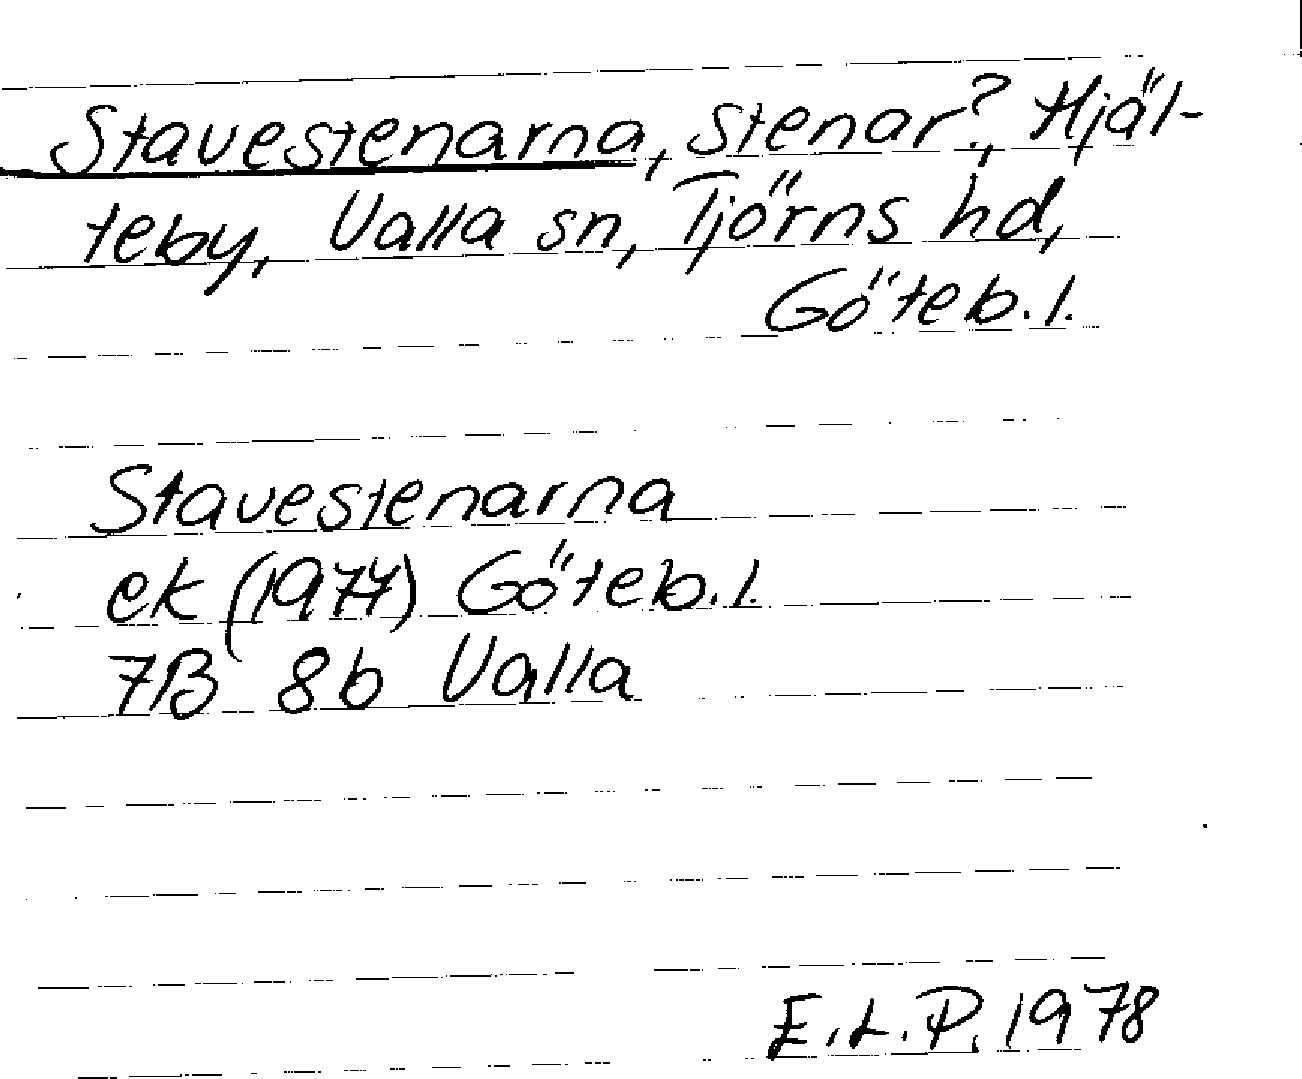 Stavestenarna, stenar?, Hjäl-
teby, Valla sn, Tjörns hd,
Göteb. l.
Stavestenarna
ek (1977) Göteb. l.
7B 8b Valla
E.L.P. 1978